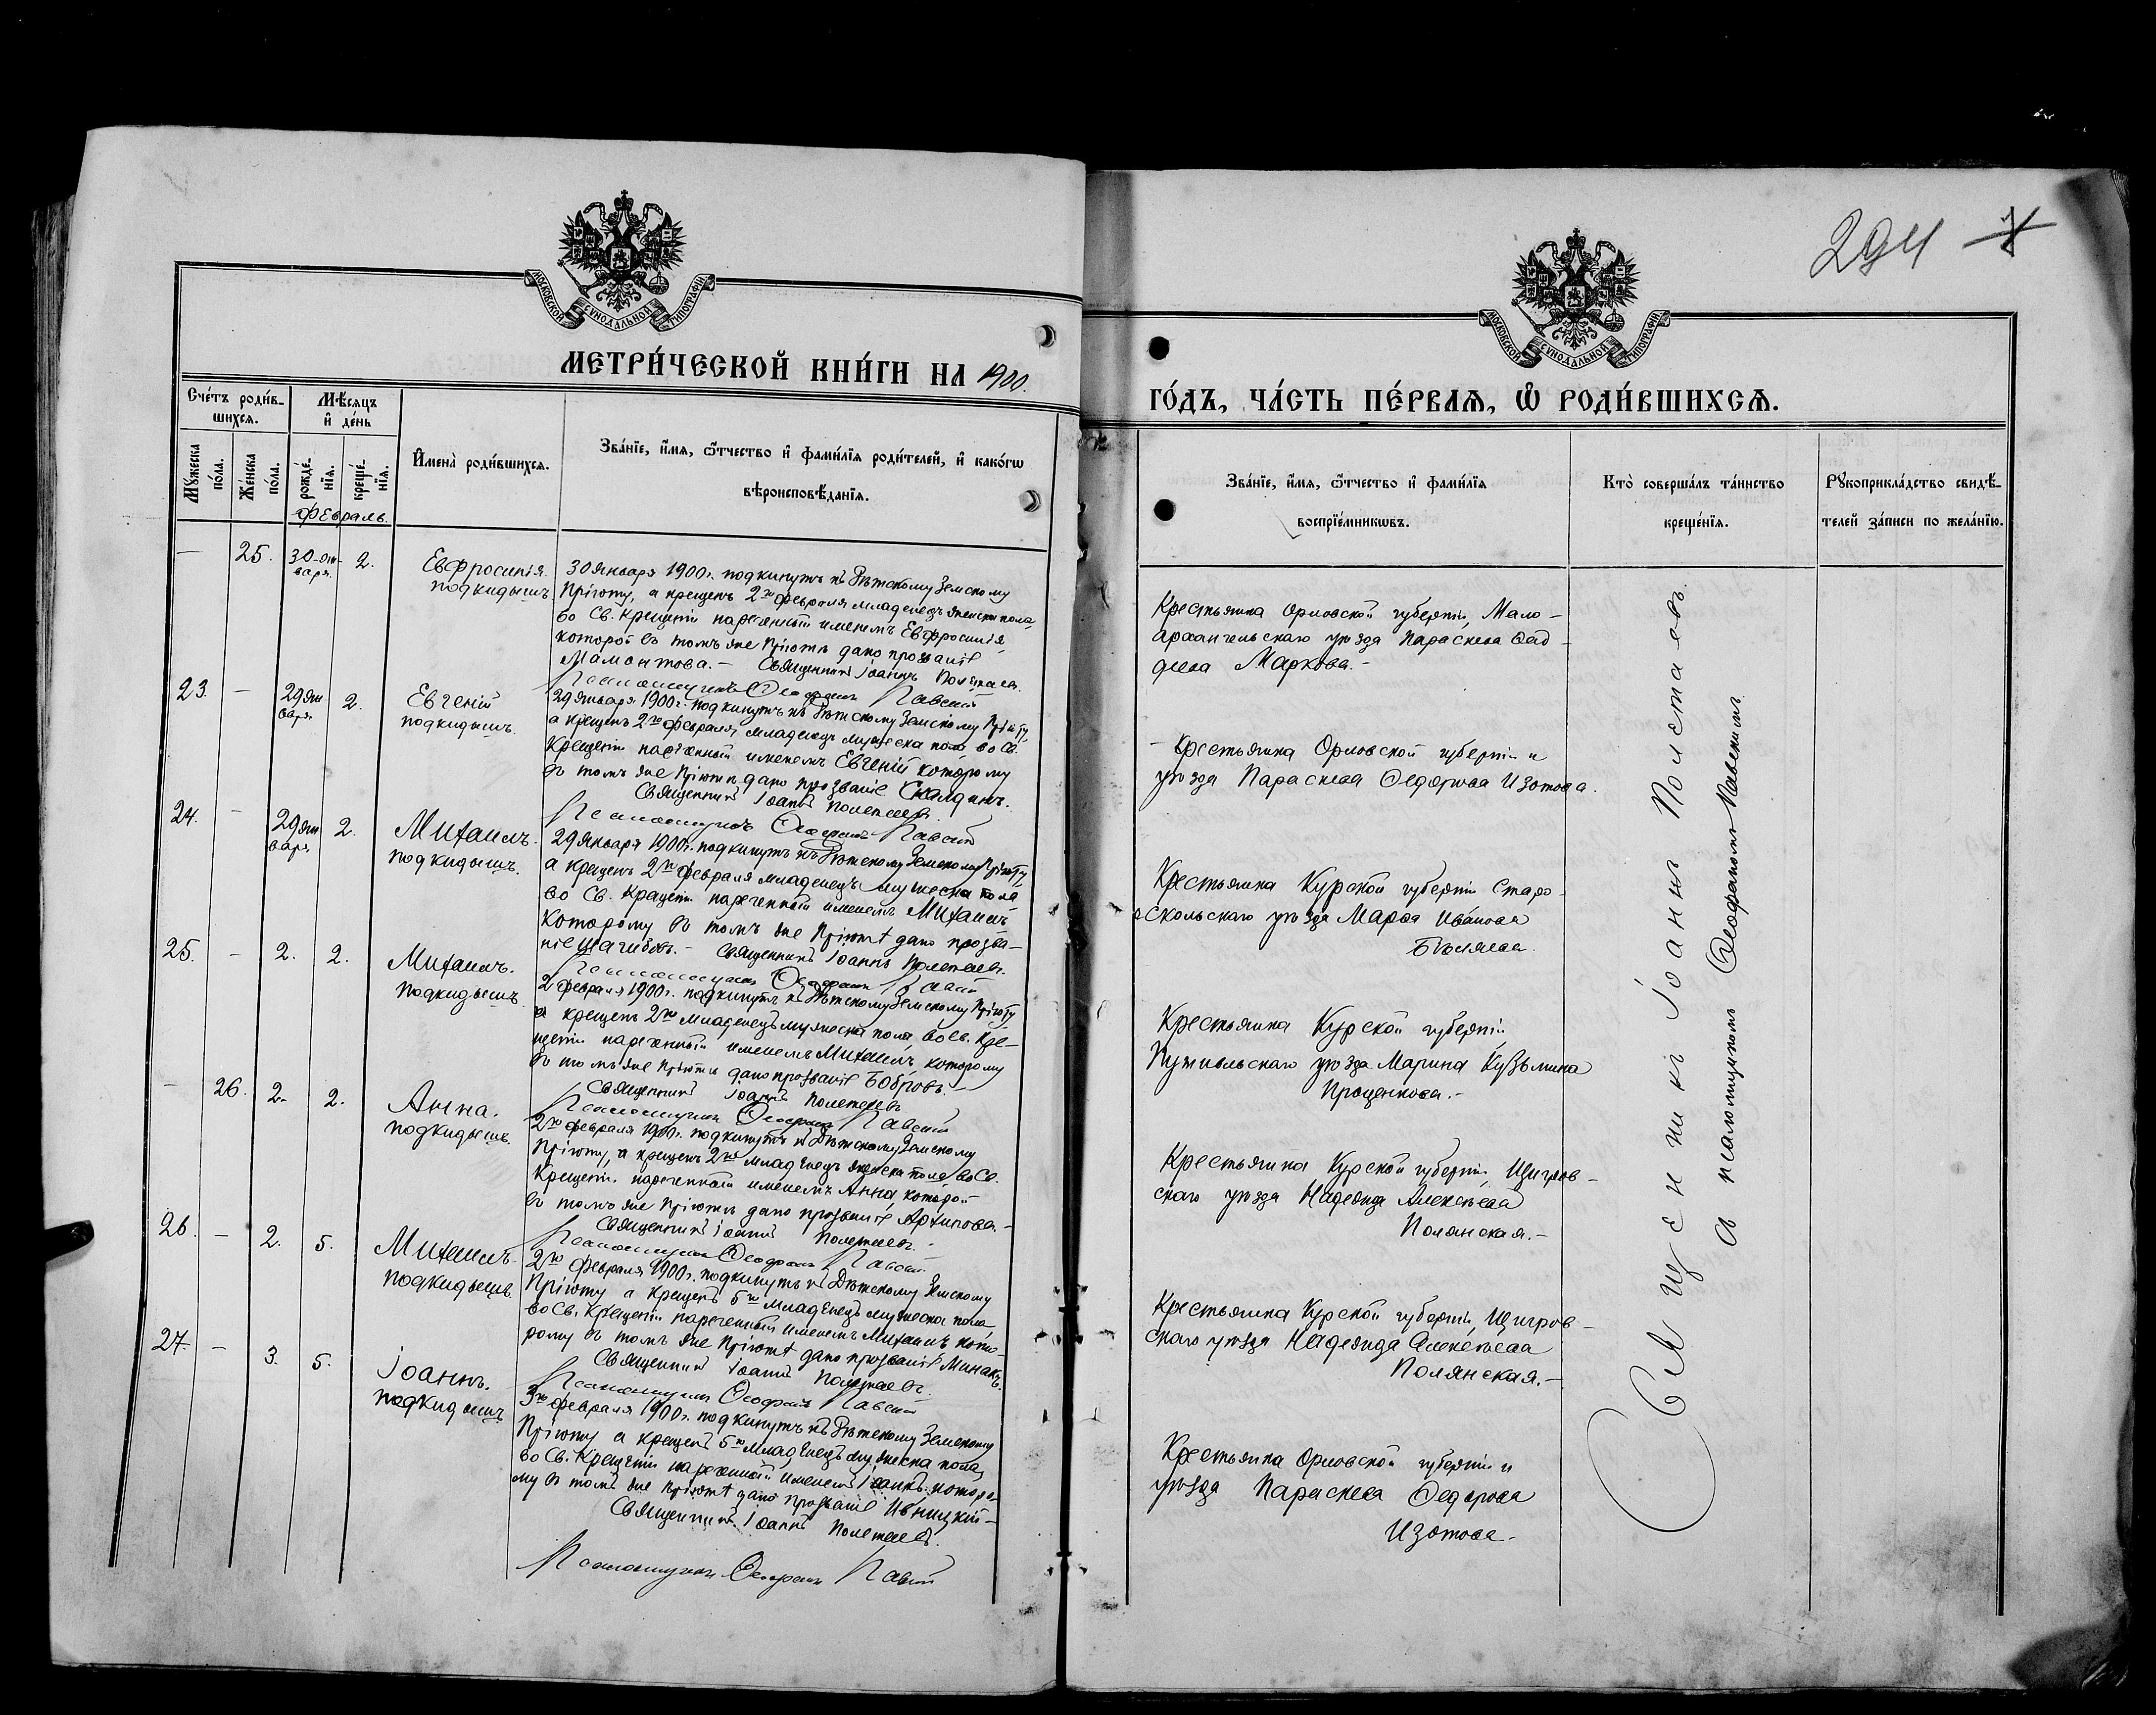 МОСКОВСКОЙ СѴНОДАЛЬНОЙ ТИПОГРАФІИ
МЕТРИ́ЧЕСКОЙ КНИ́ГИ НА 1900.
Сче́тъ роди́в-
шихся.
Мѣ́сяцъ
и҆ де́нь
Мꙋ́жеска
по́ла.
Же́нска
по́ла.
рожде́-
нїя.
креще́-
нїя.
Февраль.
И҆мена̀ роди́вшихся.
Зва́нїе, и҆́мя, ѻ҆́тчество и҆ фами́лїя роди́телей, и҆ како́гѡ
вѣроисповѣ́данїя.
— 25. 30 ян-
варя. 2.
Евфросинія
подкидышъ.
30 Января 1900 г. подкинутъ къ Дѣтскому Земскому
Пріюту, а крещенъ 2го февраля младенецъ женска пола,
во Св. Крещеніи нареченный именемъ Евфросинія,
которой въ томъ же Пріютѣ дано прозваніе
Мамонтова. — Священникъ Іоаннъ Полетаевъ.
Псаломщикъ Ѳеофанъ Павскій
23. — 29 Ян
варя 2.
Евгеній
подкидышъ.
29 Января 1900 г. подкинутъ къ Дѣтскому Земскому Пріюту,
а крещенъ 2го февраля, младенецъ мужеска пола во Св.
Крещеніи нареченный именемъ Евгеній которому
въ томъ же Пріютѣ дано прозваніе Скалдинъ.
Священникъ Іоаннъ Полетаевъ.
Псаломщикъ Ѳеофанъ Павскій
24. — 29 Ян
варя 2.
Михаилъ.
подкидышъ.
29 Января 1900 г. подкинутъ къ Дѣтскому Земскому Пріюту,
а крещенъ 2го февраля младенецъ мужеска пола
во Св. Крещеніи нареченный именемъ Михаилъ
которому въ томъ же Пріютѣ дано прозва-
ніе Шагибовъ. — Священникъ Іоаннъ Полетаевъ.
Псаломщикъ Ѳеофанъ Павскій
25. — 2. 2.
Михаилъ.
подкидышъ.
2 февраля 1900 г. подкинутъ къ Дѣтскому Земскому Пріюту
а крещенъ 2го младенецъ мужеска пола, во Св. Кре-
щеніи нареченный именемъ Михаилъ, которому
въ томъ же Пріютѣ дано прозваніе Бобровъ. —
Священникъ Іоаннъ Полетаевъ
Псаломщикъ Ѳеофанъ Павскій
— 26. 2. 2.
Анна.
подкидышъ.
2го февраля 1900 г. подкинутъ къ Дѣтскому Земскому
Пріюту, а крещенъ 2го младенецъ женска пола во Св.
Крещеніи нареченный именемъ Анна, которой
въ томъ же Пріютѣ дано прозваніе Архипова. —
Священникъ Іоаннъ Полетаевъ.
Псаломщикъ Ѳеофанъ Павскій
26. — 2. 5.
Михаилъ
подкидышъ.
2го февраля 1900 г. подкинутъ къ Дѣтскому Земскому
Пріюту а крещенъ 5го младенецъ мужеска пола
во Св. Крещеніи нареченный именемъ Михаилъ кото-
рому въ томъ же Пріютѣ дано прозваніе Минакъ.
Священникъ Іоаннъ Полетаевъ.
Псаломщикъ Ѳеофанъ Павскій
27. — 3. 5.
Іоаннъ.
подкидышъ
3го февраля 1900 г. подкинутъ къ Дѣтскому Земскому
Пріюту а крещенъ 5го младенецъ мужеска пола,
во Св. Крещеніи нареченный именемъ Іоаннъ, которо-
му въ томъ же Пріютѣ дано прозваніе Ивницкій —
Священникъ Іоаннъ Полетаевъ.
Псаломщикъ Ѳеофанъ Павскій
294
МОСКОВСКОЙ СѴНОДАЛЬНОЙ ТИПОГРАФІИ
ГО́ДЪ, ЧА́СТЬ ПЕ́РВАЯ, Ѽ РОДИ́ВШИХСЯ.
Зва́нїе, и҆́мя, ѻ҆́тчество и҆ фами́лїя
воспрїе́мникѡвъ.
Кто̀ соверша́лъ та́инство
креще́нїя.
Рꙋкоприкла́дство свидѣ́-
телей за́писи по жела́нїю.
Крестьянка Орловской губерніи, Мало-
архангельскаго уѣзда Параскева Ѳад-
деева Маркова. —
Крестьянка Орловской губерніи и
уѣзда Параскева Ѳедорова Изотова.
Крестьянка Курской губерніи Старо-
оскольскаго уѣзда Марѳа Иванова
Бѣляева.
Крестьянка Курской губерніи,
Путивльскаго уѣзда Марина Кузьмина
Проценкова. —
Крестьянка Курской губерніи, Щигров-
скаго уѣзда Надежда Алексѣева
Полянская. —
Крестьянка Курской губерніи, Щигров-
скаго уѣзда Надежда Алексѣева
Полянская. —
Крестьянка Орловской губерніи и
уѣзда Параскева Ѳедорова
Изотова. —
Священникъ Іоаннъ Полетаевъ
съ псаломщикомъ Ѳеофаномъ Павскимъ